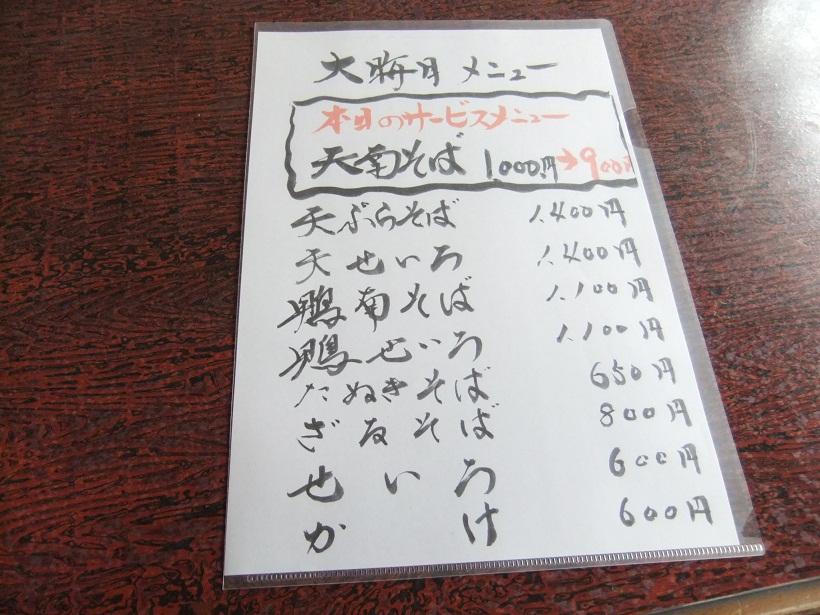 大晦日 メニュー
本日のサービスメニュー
天南そば 1.000円→900円
天ぷらそば 1.400円
天せいろ 1.400円
鴨南そば 1.100円
鴨せいろ 1.100円
たぬきそば 650円
ざるそば 800円
せいろ 600円
かけ 600円